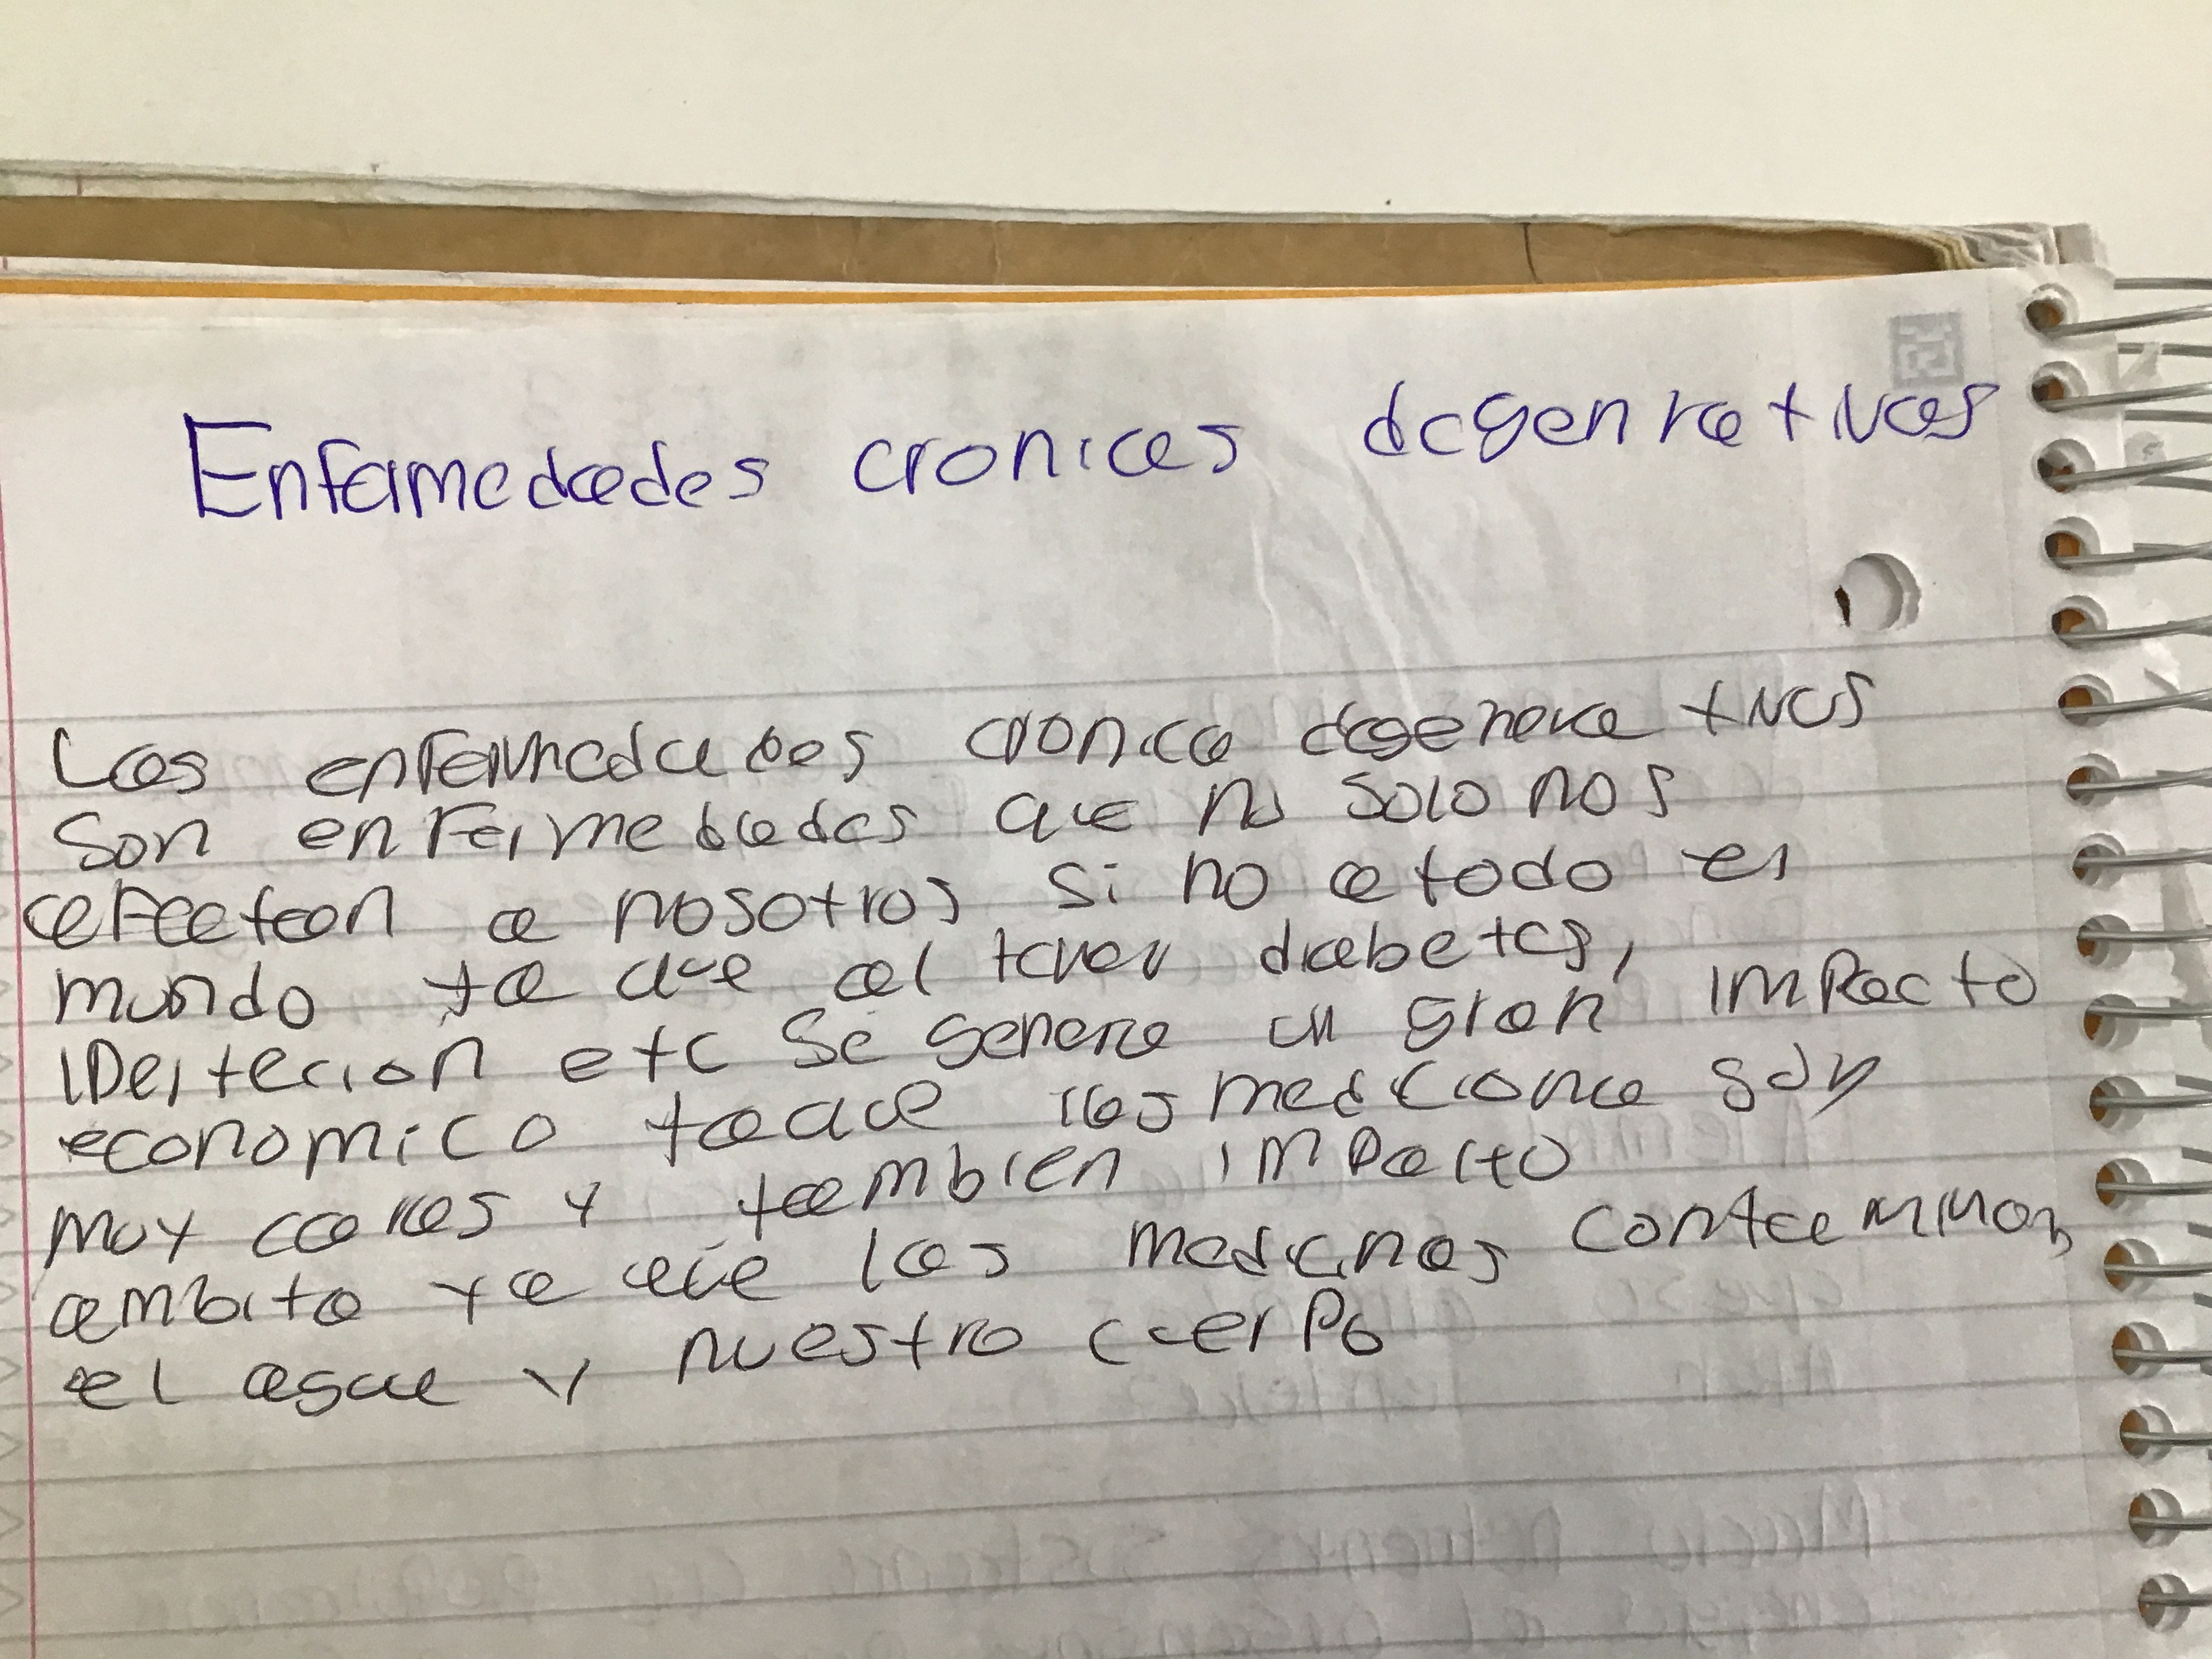 Enfamedades cronicas degenrativas
Las enfermedades cronica degenerativas
Son enfermedades que no solo nos
afectan a nosotros si no a todo el
mundo ya que al tener diabetes,
ipertercion etc se genera un gran impacto
economico ya que las mediciona son
muy caras y tambien impacto
ambita ya que las medicinas contaminan
el agua y nuestro cuerpo